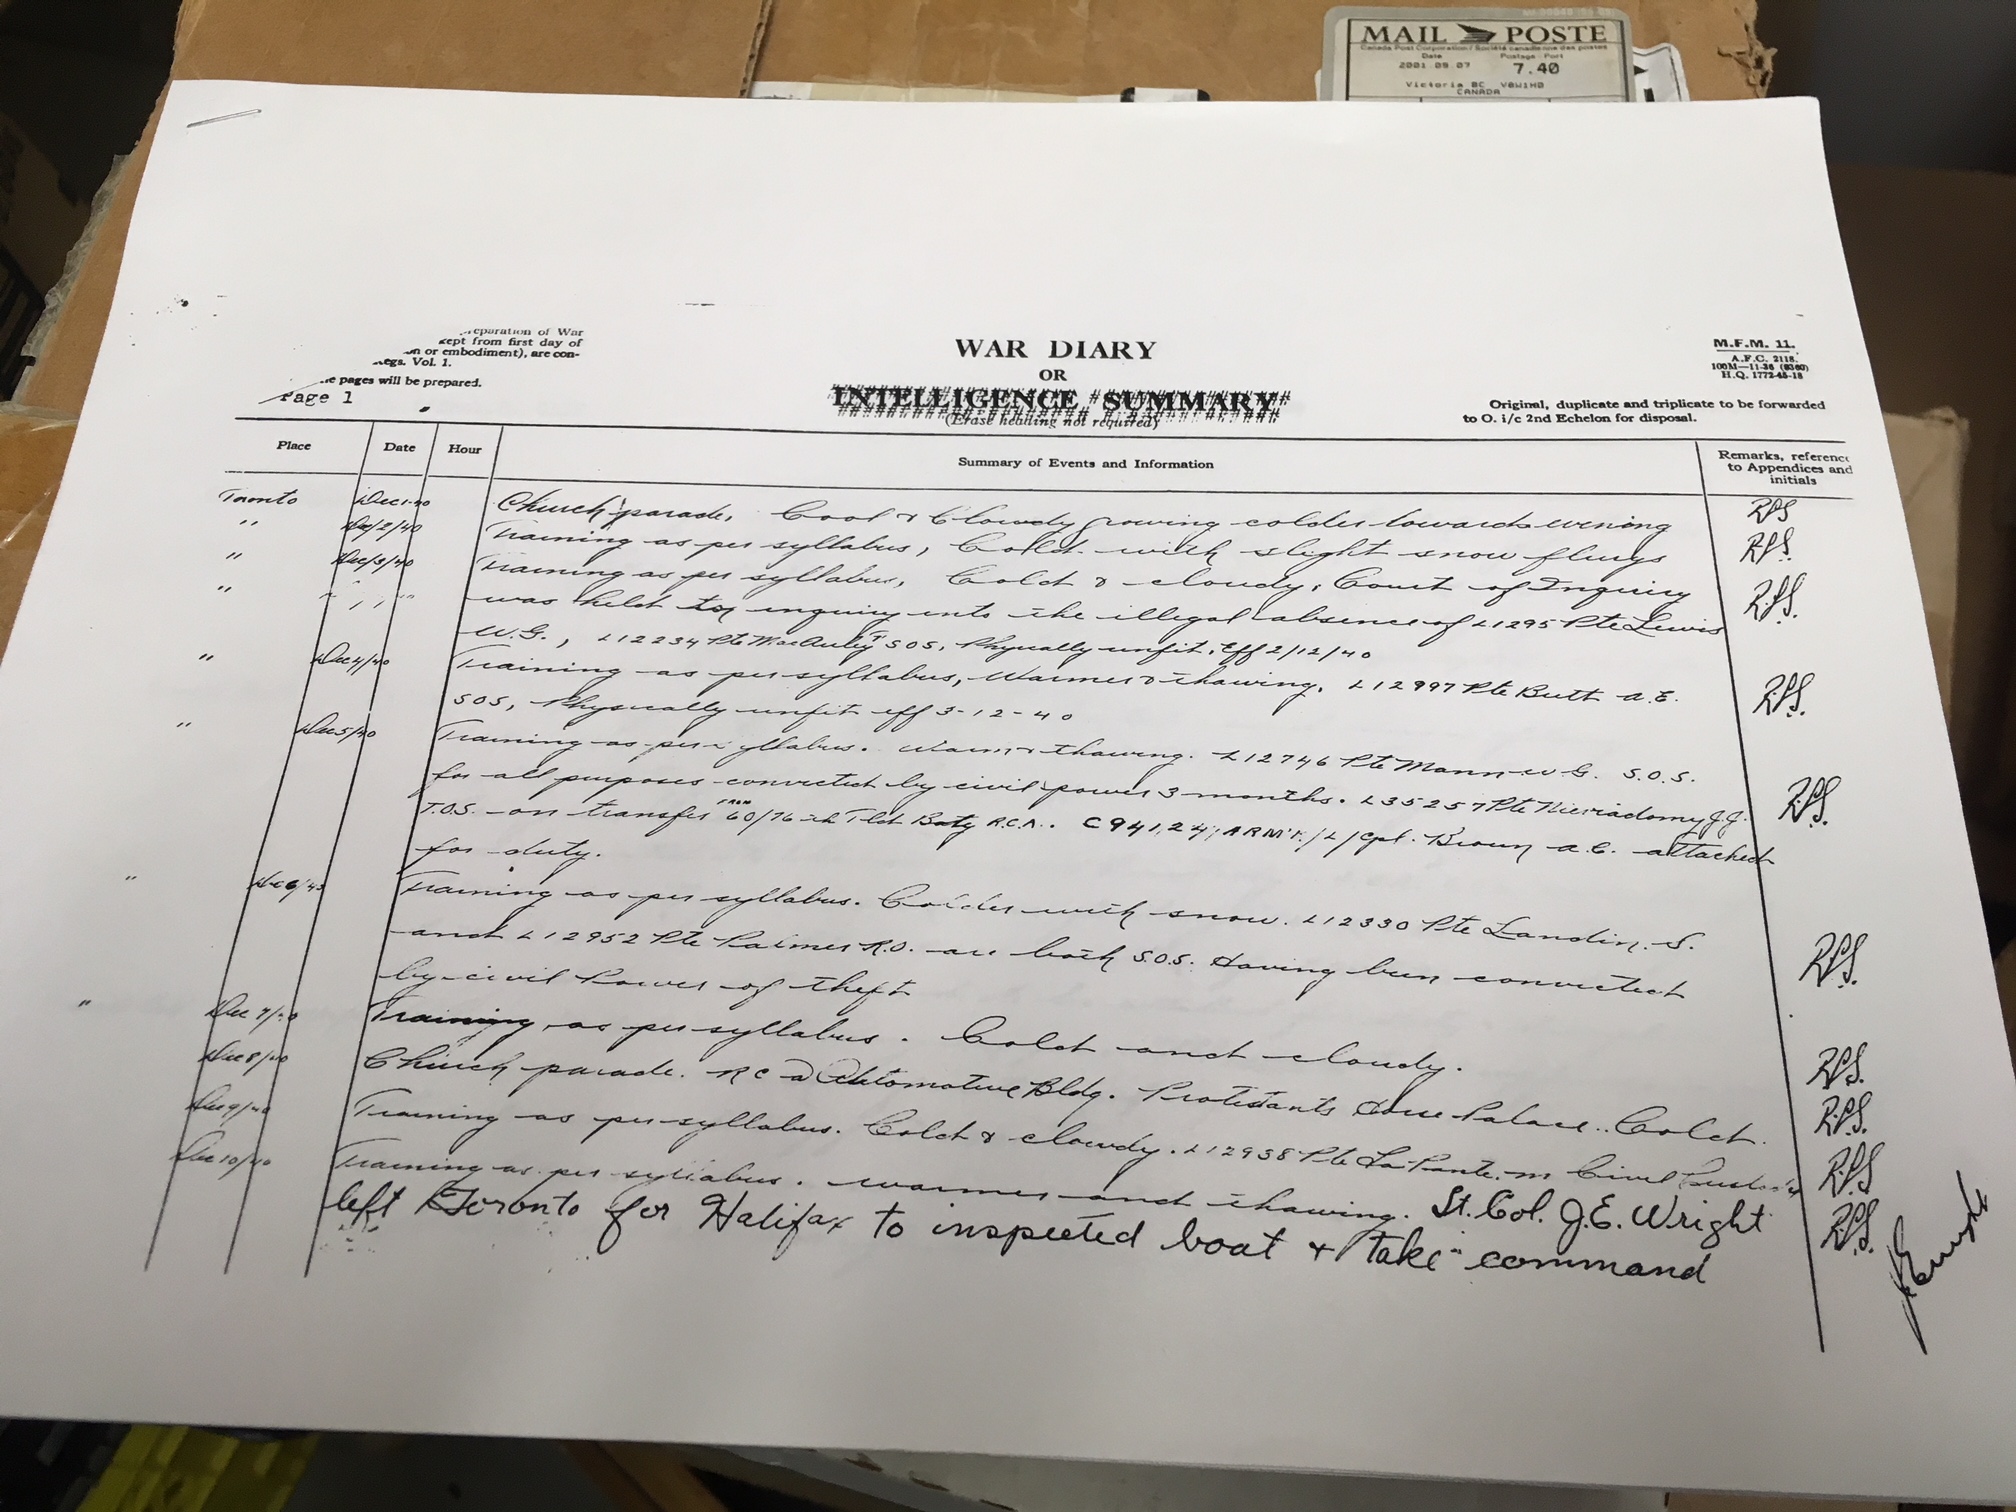 MAIL POSTE
Canada Post Corporation / Société canadienne des postes
Date Postage - Port
2001.09.07 7.40
Victoria BC V8W1H0
CANADA
reparation of War
kept from first day of
on or embodiment), are con-
Regs. Vol. 1.
pages will be prepared.
Page 1
WAR DIARY
OR
INTELLIGENCE SUMMARY
(Erase heading not required)
M.F.M. 11.
A.F.C. 2118.
100M—11-36 (8360)
H.Q. 1772-45-18
Original, duplicate and triplicate to be forwarded
to O. i/c 2nd Echelon for disposal.
Place Date Hour Summary of Events and Information Remarks, reference
to Appendices and
initials
Toronto Dec 1-40 Church parade, Cool & Cloudy growing colder towards evening RPS
" Dec/2/40 Training as per syllabus, Cold with slight snow flurys R.P.S.
" Dec/3/40 Training as per syllabus, Cold & cloudy, Court of Inquiry
" " " " was held to inquiry into the illegal absence of L1295 Pte Lewis R.P.S.
W.G., L12234 Pte MacAuley SOS, Physually unfit, Eff 2/12/40
" Dec 4/40 Training as per syllabus, Warmer & thawing. L12997 Pte Butt A.E. R.P.S.
SOS, Physually unfit eff 3-12-40
" Dec 5/40 Training as per syllabus. Warm & thawing. L12746 Pte Mann W G. S.O.S.
for all purposes convicted by civil power 3 months. L35257 Pte J.J. R.P.S.
T.O.S. on transfer FROM 60/76 th Bty R.C.A.. C94124 /L/Cpl. Brown A.C. attached
for duty.
" Dec 6/40 Training as per syllabus. Colder with snow. L12330 Pte Landin. S.
and L12952 Pte Palmer R.O. are both S.O.S. Having been convicted R.P.S.
by civil Power of theft
" Dec 7/40 Training as per syllabus. Cold and cloudy. R.P.S.
Dec 8/40 Church parade. RC Automotive Bldg. Protestants Horse Palace.. Cold. R.P.S.
Dec 9/40 Training as per syllabus. Cold & cloudy. L12938 Pte LaPante. M Civil R.P.S
Dec 10/40 Training as per syllabus. warmer and thawing. Lt. Col. J.E. Wright R.P.S.
left Toronto for Halifax to inspected boat & take command